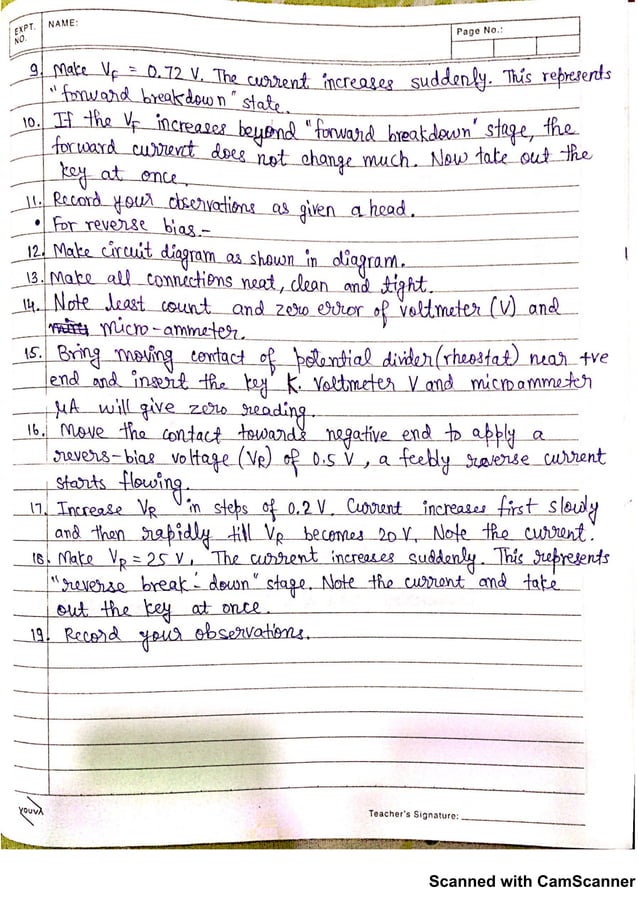 EXPT. NO.
NAME:
Page No.:
9. Make VF = 0.72 V. The current increases suddenly. This represents
"forward breakdown" state.
10. If the VF increases beyond "forward breakdown" stage, the
forward current does not change much. Now take out the
key at once.
11. Record your observations as given ahead.
• For reverse bias:-
12. Make circuit diagram as shown in diagram.
13. Make all connections neat, clean and tight.
14. Note least count and zero error of voltmeter (V) and
micro-ammeter.
15. Bring moving contact of potential divider (rheostat) near +ve
end and insert the key K. Voltmeter V and microammeter
μA will give zero reading.
16. Move the contact towards negative end to apply a
revers-bias voltage (VR) of 0.5 V, a feebly reverse current
starts flowing.
17. Increase VR in steps of 0.2 V. Current increases first slowly
and then rapidly till VR becomes 20 V. Note the current.
18. Make VR = 25 V. The current increases suddenly. This represents
"reverse break-down" stage. Note the current and take
out the key at once.
19. Record your observations.
YOUVA
Teacher's Signature:
Scanned with CamScanner